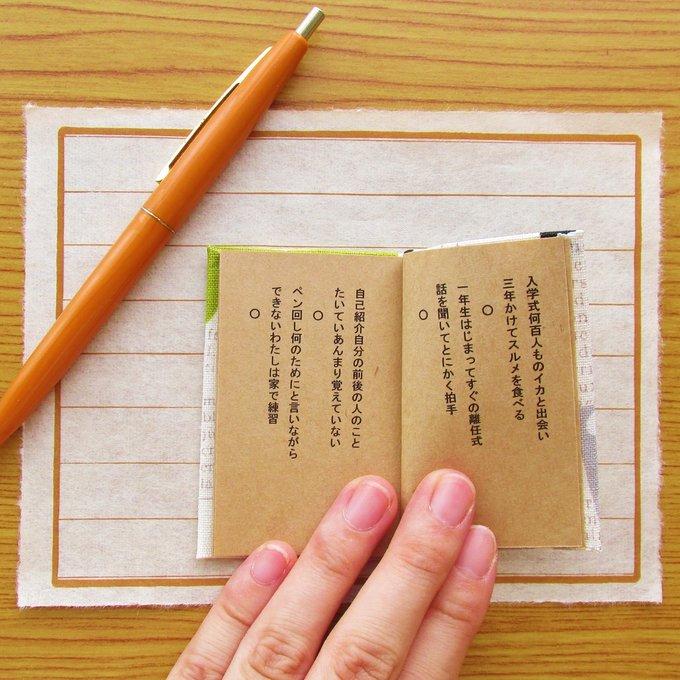 入学式何百人ものイカと出会い
三年かけてスルメを食べる
○
一年生はじまってすぐの離任式
話を聞いてとにかく拍手
○
自己紹介自分の前後の人のこと
たいていあんまり覚えていない
○
ペン回し何のためにと言いながら
できないわたしは家で練習
○